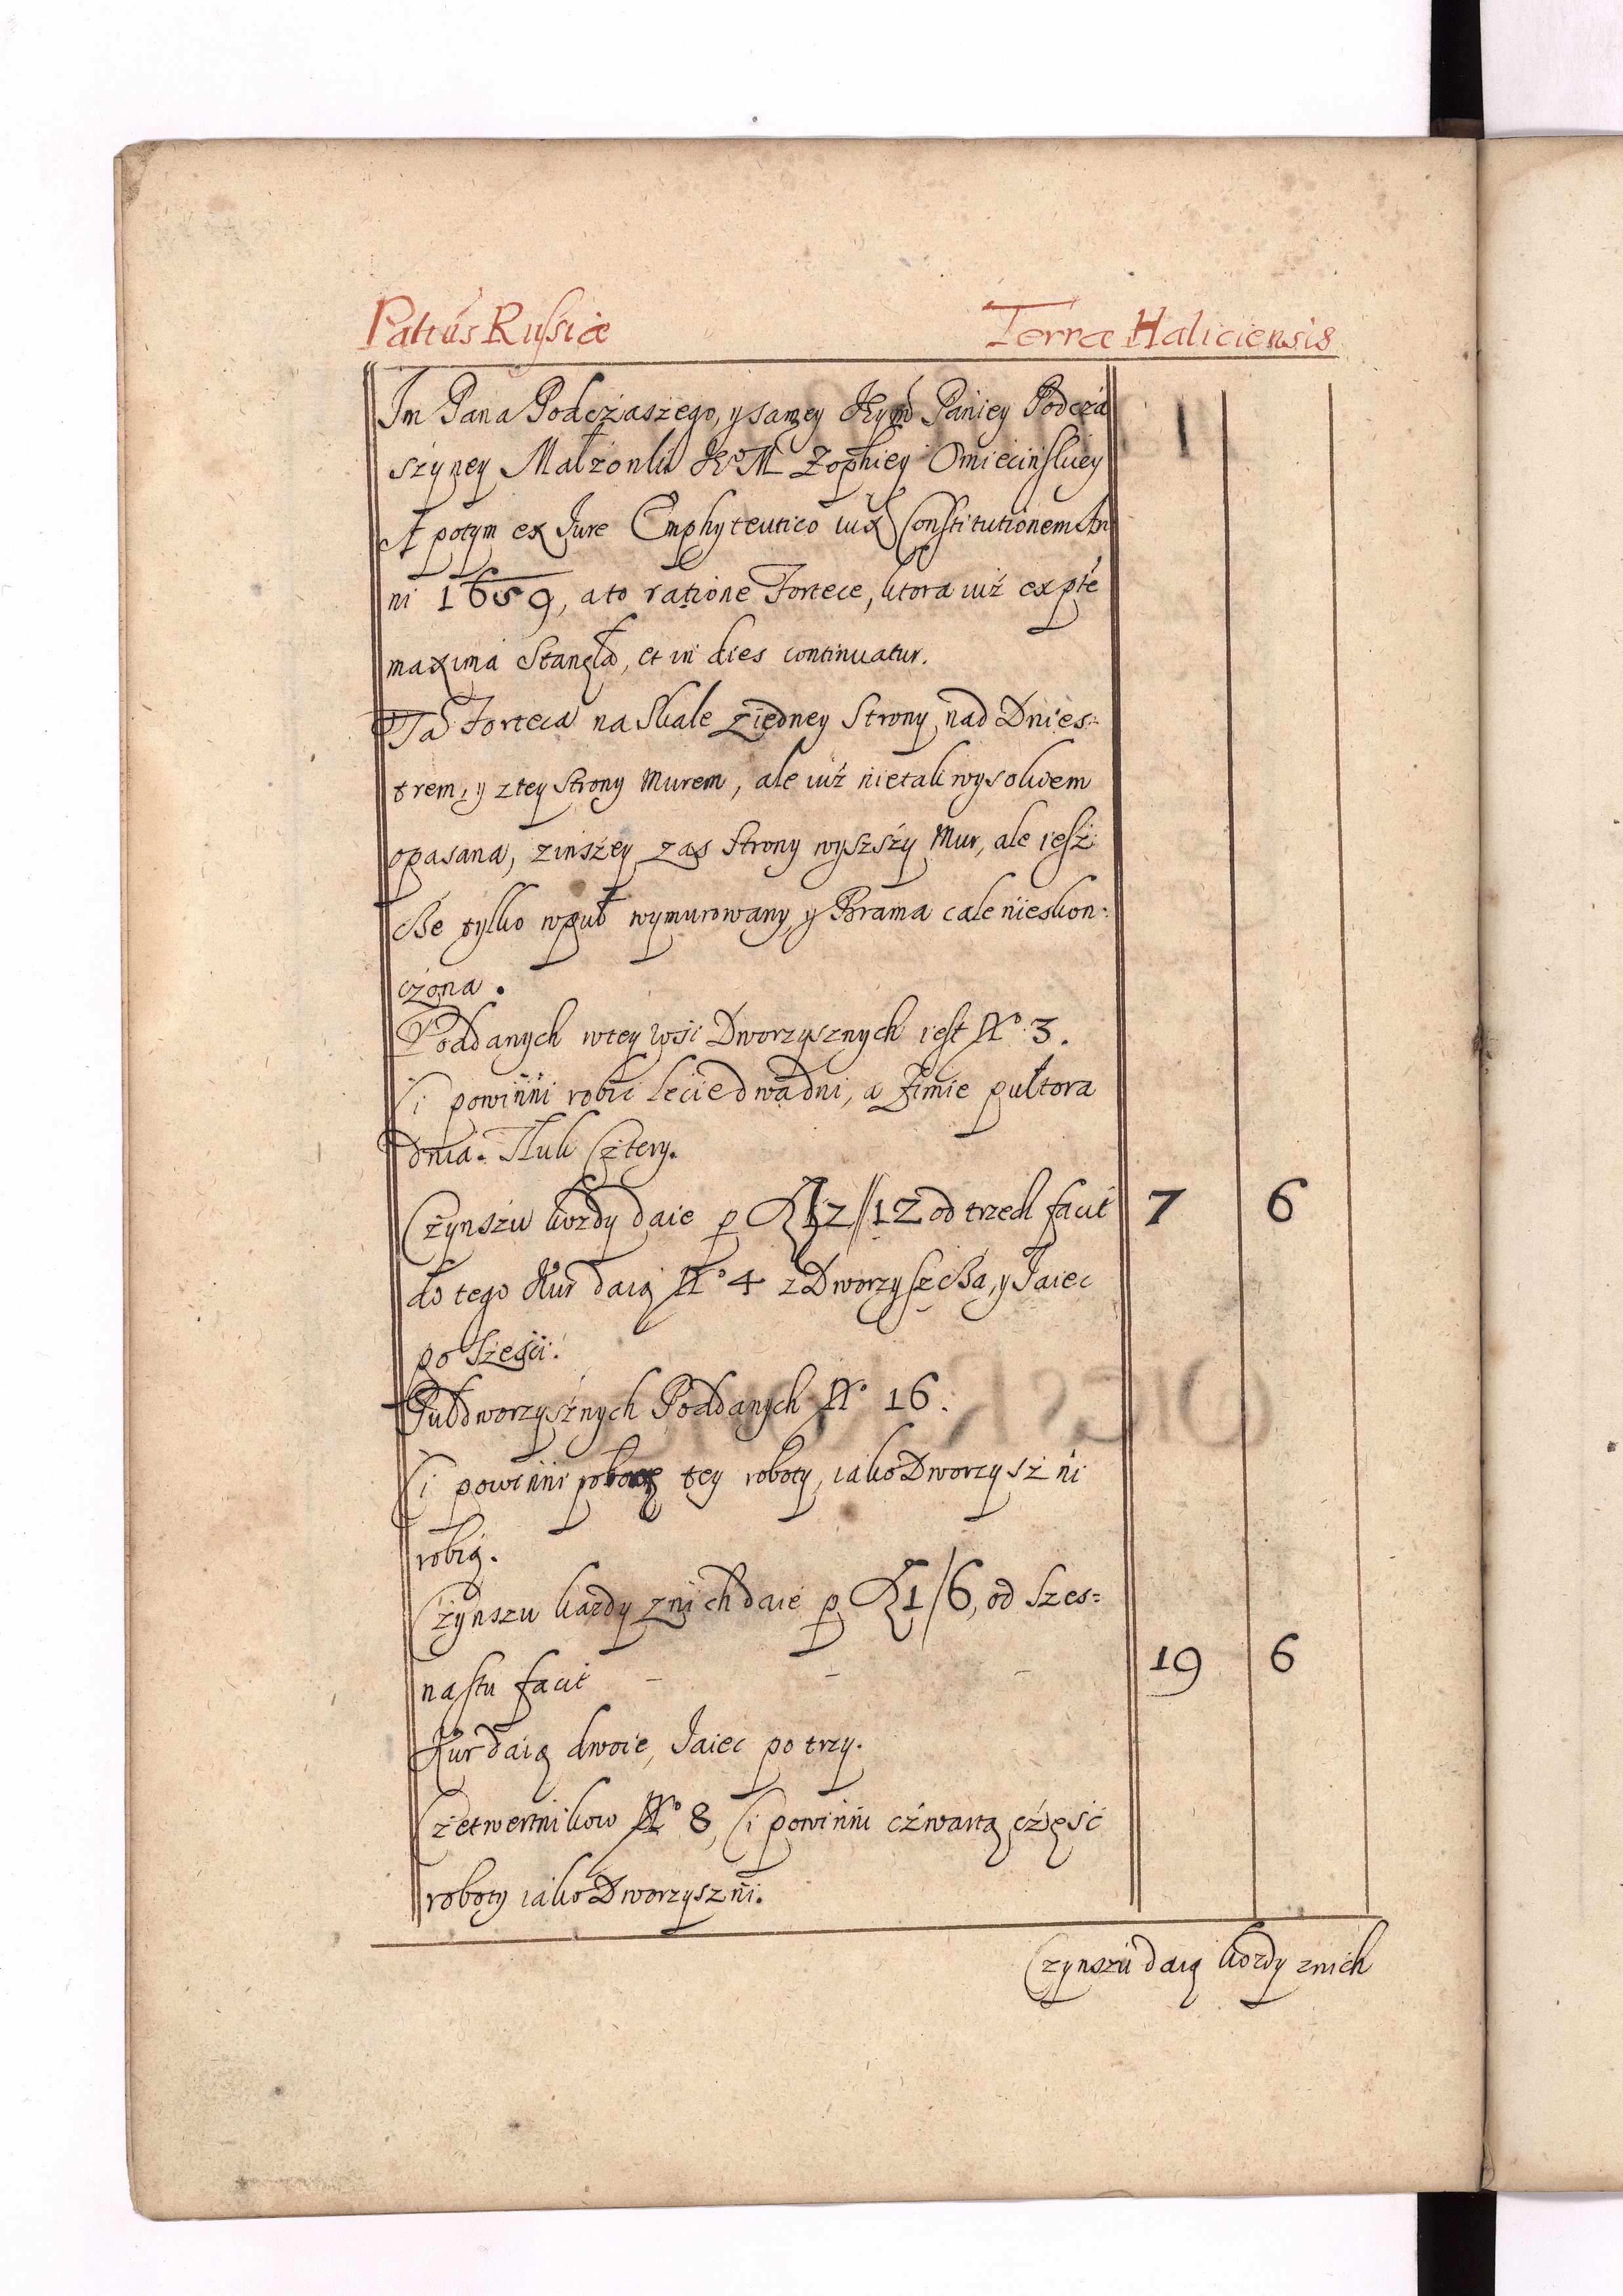 Paltûs Russiæ Terræ Haliciensis
Jm Pana Podcżaszego, y samey Jeym Paniey Podcża
szyney Małżonki JeoM Zophiey Omiecinskiey
A potym ex Jure Emphyteutico iux Constitutionem An
ni 1659, a to ratione Fortece, ktora iuż ex pte
maxima Stanęła, et in dies continuatur.
Ta Forteca na Skale z iedney Strony nad Dnies=
trem, y z tey Strony Murem, ale iuż nie tak wysokiem
opasana, z inszey zas Strony wyszszy Mur, ale iesz
cze tylko w puł wymurowany, y Brama cale nieskon=
czona.
Poddanych w tey wsi Dworzysznych iest No 3.
Ci powinni robic lecie dwa dni, a Zimie pułtora
dnia. Tłuk Cztery.
Czynszu kozdy daie p fl 2//12 od trzech facit 7 6
do tego Kur daią No 4 z Dworzyszcza, y Jaiec
po Szesci.
Pułdworzysznych Poddanych No 16.
Ci powinni połowę tey roboty, iako Dworzyszni
robią.
Czynszu każdy z nich daie p fl 1/6, od Szes=
nastu facit - - - 19 6
Kur daią dwoie, Jaiec po trzy.
Czetwertnikow No 8, Ci powinni czwartą część
roboty iako Dworzyszni.
Czynszu daią kozdy z nich